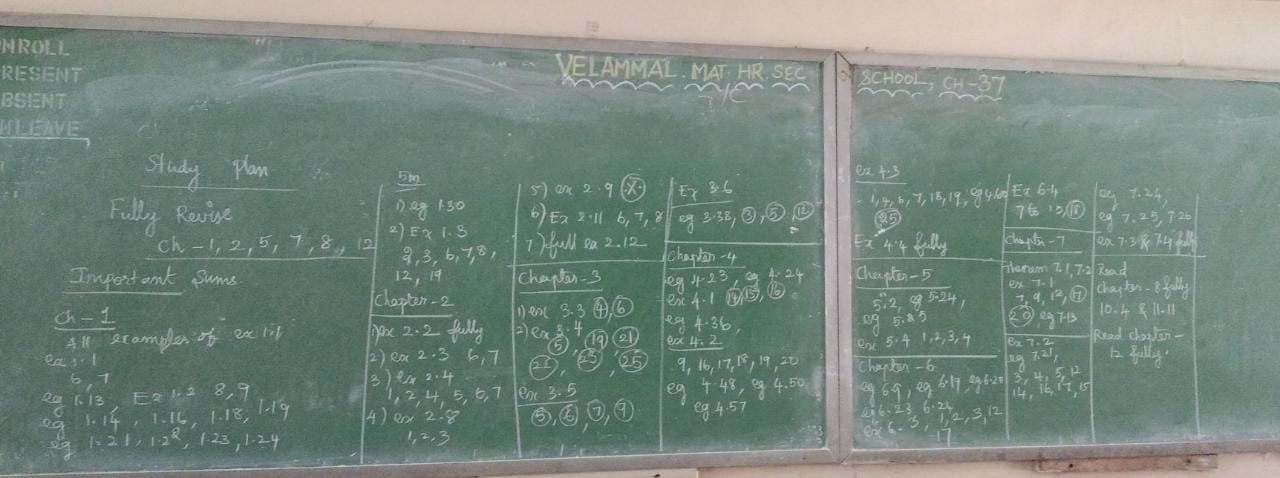 NROLL
RESENT
BSENT
N LEAVE
VELAMMAL. MAT. HR. SEC SCHOOL, CH-37
Study Plan
Fully Revise
Ch - 1, 2, 5, 7, 8, 12
Important Sums
Ch - 1
All examples of ex 1.1
ex 1.1
6, 7
Ex 1.2 8, 9
eg 1.13
eg 1.14, 1.16, 1.18, 1.19
eg 1.21, 1.22, 1.23, 1.24
5m
1) eg 1.30
2) Ex 1.3
9, 3, 6, 7, 8,
12, 19
Chapter - 2
1) ex 2.2 fully
2) ex 2.3 6, 7
3) ex 2.4
1, 2, 4, 5, 6, 7
4) ex 2.8
1, 2, 3
5) ex 2.9
6) Ex 2.11 6, 7, 8
7) full ex 2.12
Chapter - 3
1) ex 3.3 4, 6
2) ex 3.4
5, 19, 21
25
ex 3.5
5, 6, 7, 9
Ex 3.6
eg 3.38, 3, 5, 12
Chapter - 4
eg 4.23, eg 4.24
ex 4.1 14, 15, 16
eg 4.36,
ex 4.2
9, 16, 17, 18, 19, 20
eg 4.48, eg 4.50
eg 4.57
ex 4.3
1, 4, 6, 7, 18, 19, eg 4.60
25
Ex 4.4 fully
Chapter - 5
5.2, eg 5.24,
eg 5.25
ex 5.4 1, 2, 3, 4
Chapter - 6
eg 6.9, eg 6.19, eg 6.20
eg 6.23, 6.24
ex 6.3, 1, 2, 3, 12
17
Ex 6.4
7 to 10,
Chapter - 7
Theorem 7.1, 7.2
ex 7.1
7, 9, 12, 17
20, eg 7.13
ex 7.2
eg 7.21,
3, 4, 5, 12
14, 16, 17, 15
eg 7.24,
eg 7.25, 7.26
ex 7.3 & 7.4 fully
Read
Chapter - 8 fully
10.4 & 11.11
Read chapter -
12 fully.